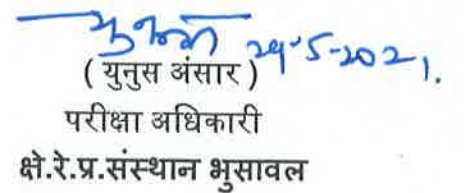 24-5-2021.
( युनुस अंसार )
परीक्षा अधिकारी
क्षे.रे.प्र.संस्थान भुसावल